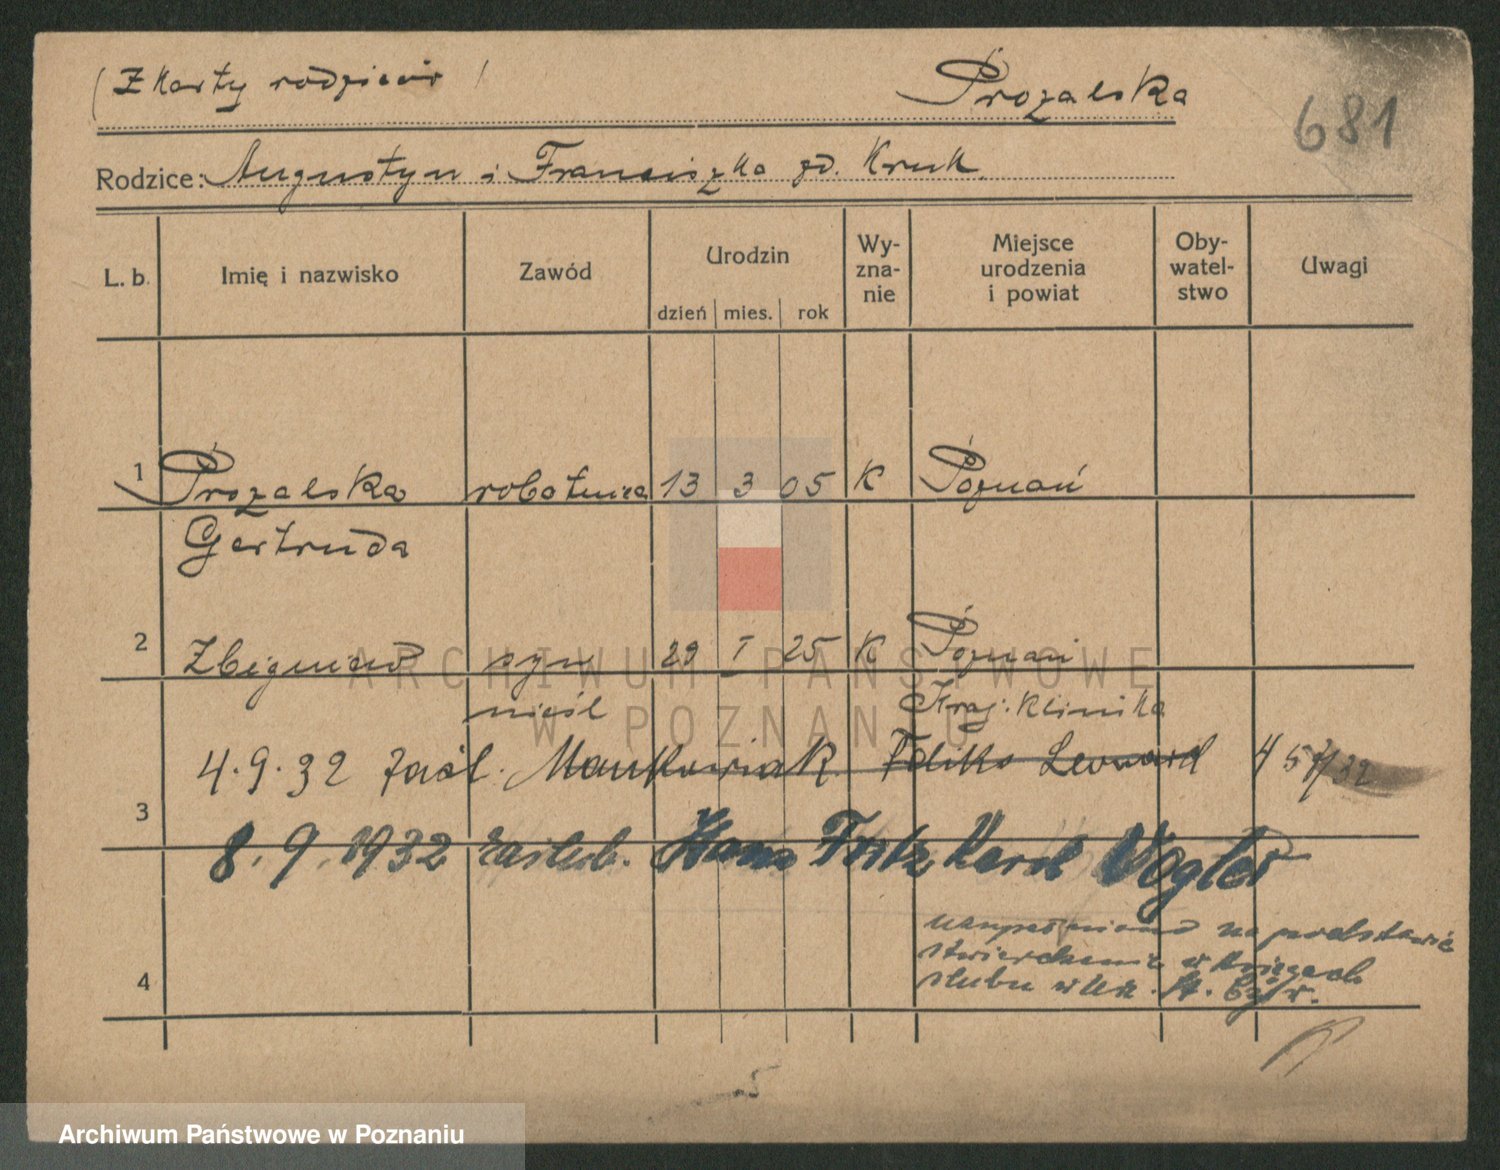 (Z karty rodziców)
Prozalska
681
Rodzice: Augustyn i Franciszka zd. Kruk.
L. b.
Imię i nazwisko
Zawód
Urodzin
dzień mies. rok
Wy-
zna-
nie
Miejsce
urodzenia
i powiat
Oby-
watel-
stwo
Uwagi
1 Prozalska robotnica 13 3 05 K Poznań
Gertruda
2 Zbigniew syn 29 I 25 K Poznań
nieśl Kraj. Klinika
4.9.32 zaśl. Mańkowiak Feliks Leonard
3
8.9.1932 zaślub. Hans Fritz Karol Vogler
na podstawie
w księgach
4 ślubu
5
ARCHIWUM PAŃSTWOWE
W POZNANIU
Archiwum Państwowe w Poznaniu